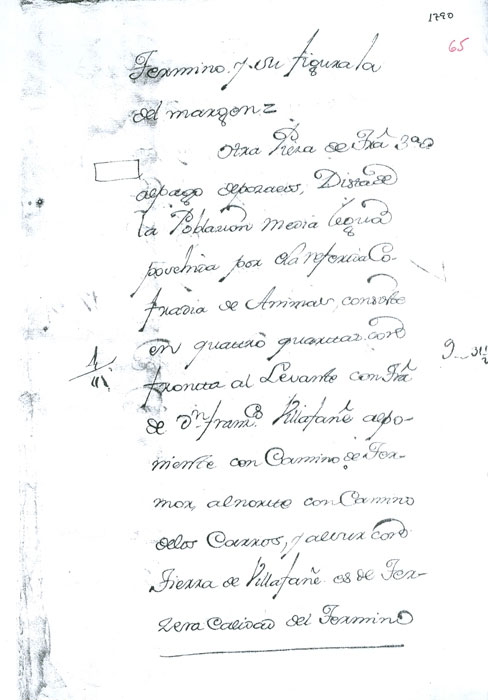 1790
65
Termino. y su figura la
del margen =
Otra Pieza de Trã
al pago de Distã de
la Poblacion media legua
posehida por la referida Co-
fradia de Animas, consiste
en quatro quartas. con
fronta al Levante con Trã
de Dn. franco. Villafañe al po-
niente con Camino de Tor-
mos, al norte con Camino
de los Carros, y al sur con
Tierra de Villafañe es de Ter-
zera Calidad del Termino
1/4
9